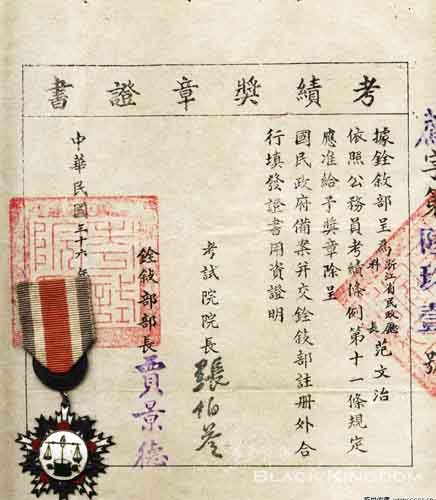 考績獎章證書
薦字第陸玖壹號
據銓敘部呈為浙江省民政廳科長范文治
依照公務員考績條例第十一條規定
應准給予獎章除呈
國民政府備案并交銓敘部註冊外合
行填發證書用資證明
考試院院長 張伯苓
銓敘部部長 賈景德
中華民國三十六年
BLACK KINGDOM